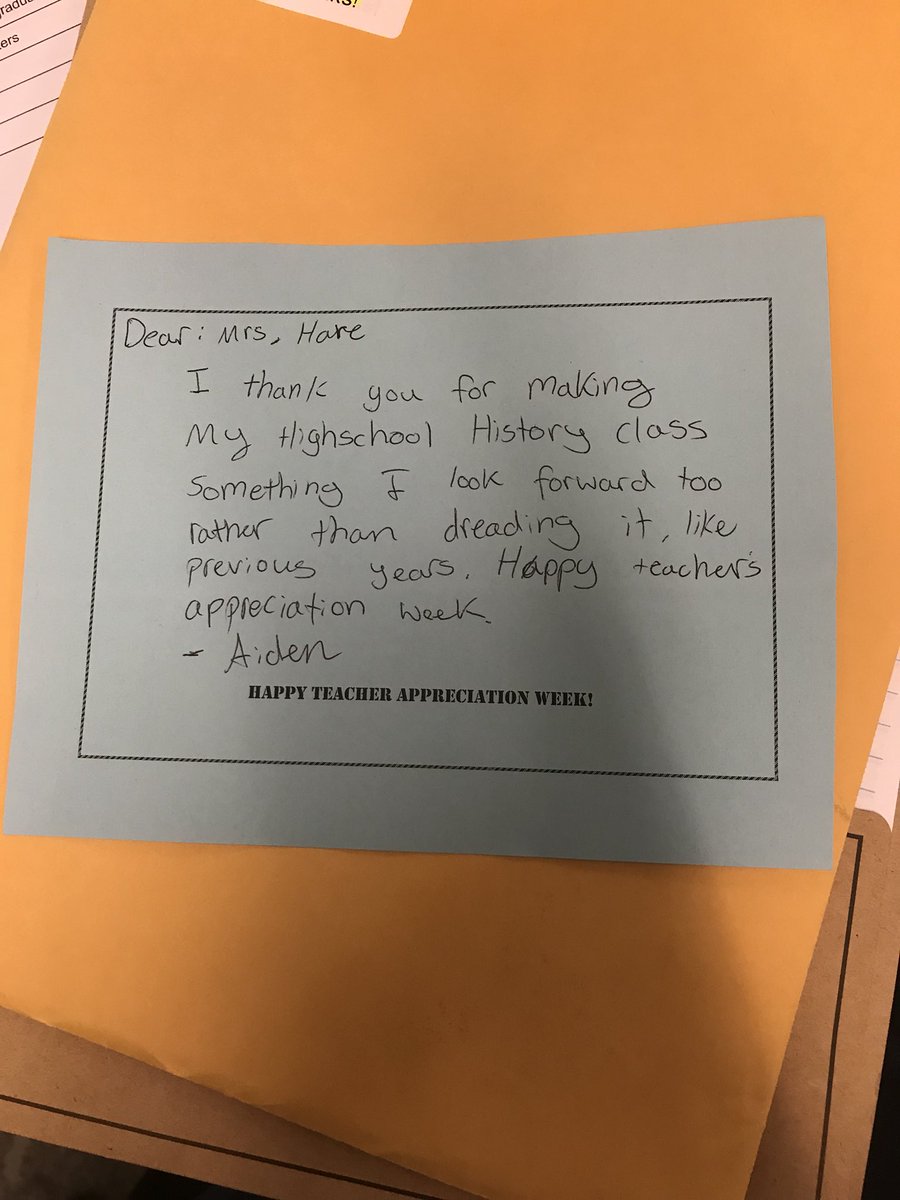 ers
Dear: Mrs, Hare
I thank you for making
My Highschool History class
Something I look forward too
rather than dreading it, like
previous years. Happy teacher's
appreciation week.
- Aiden
HAPPY TEACHER APPRECIATION WEEK!